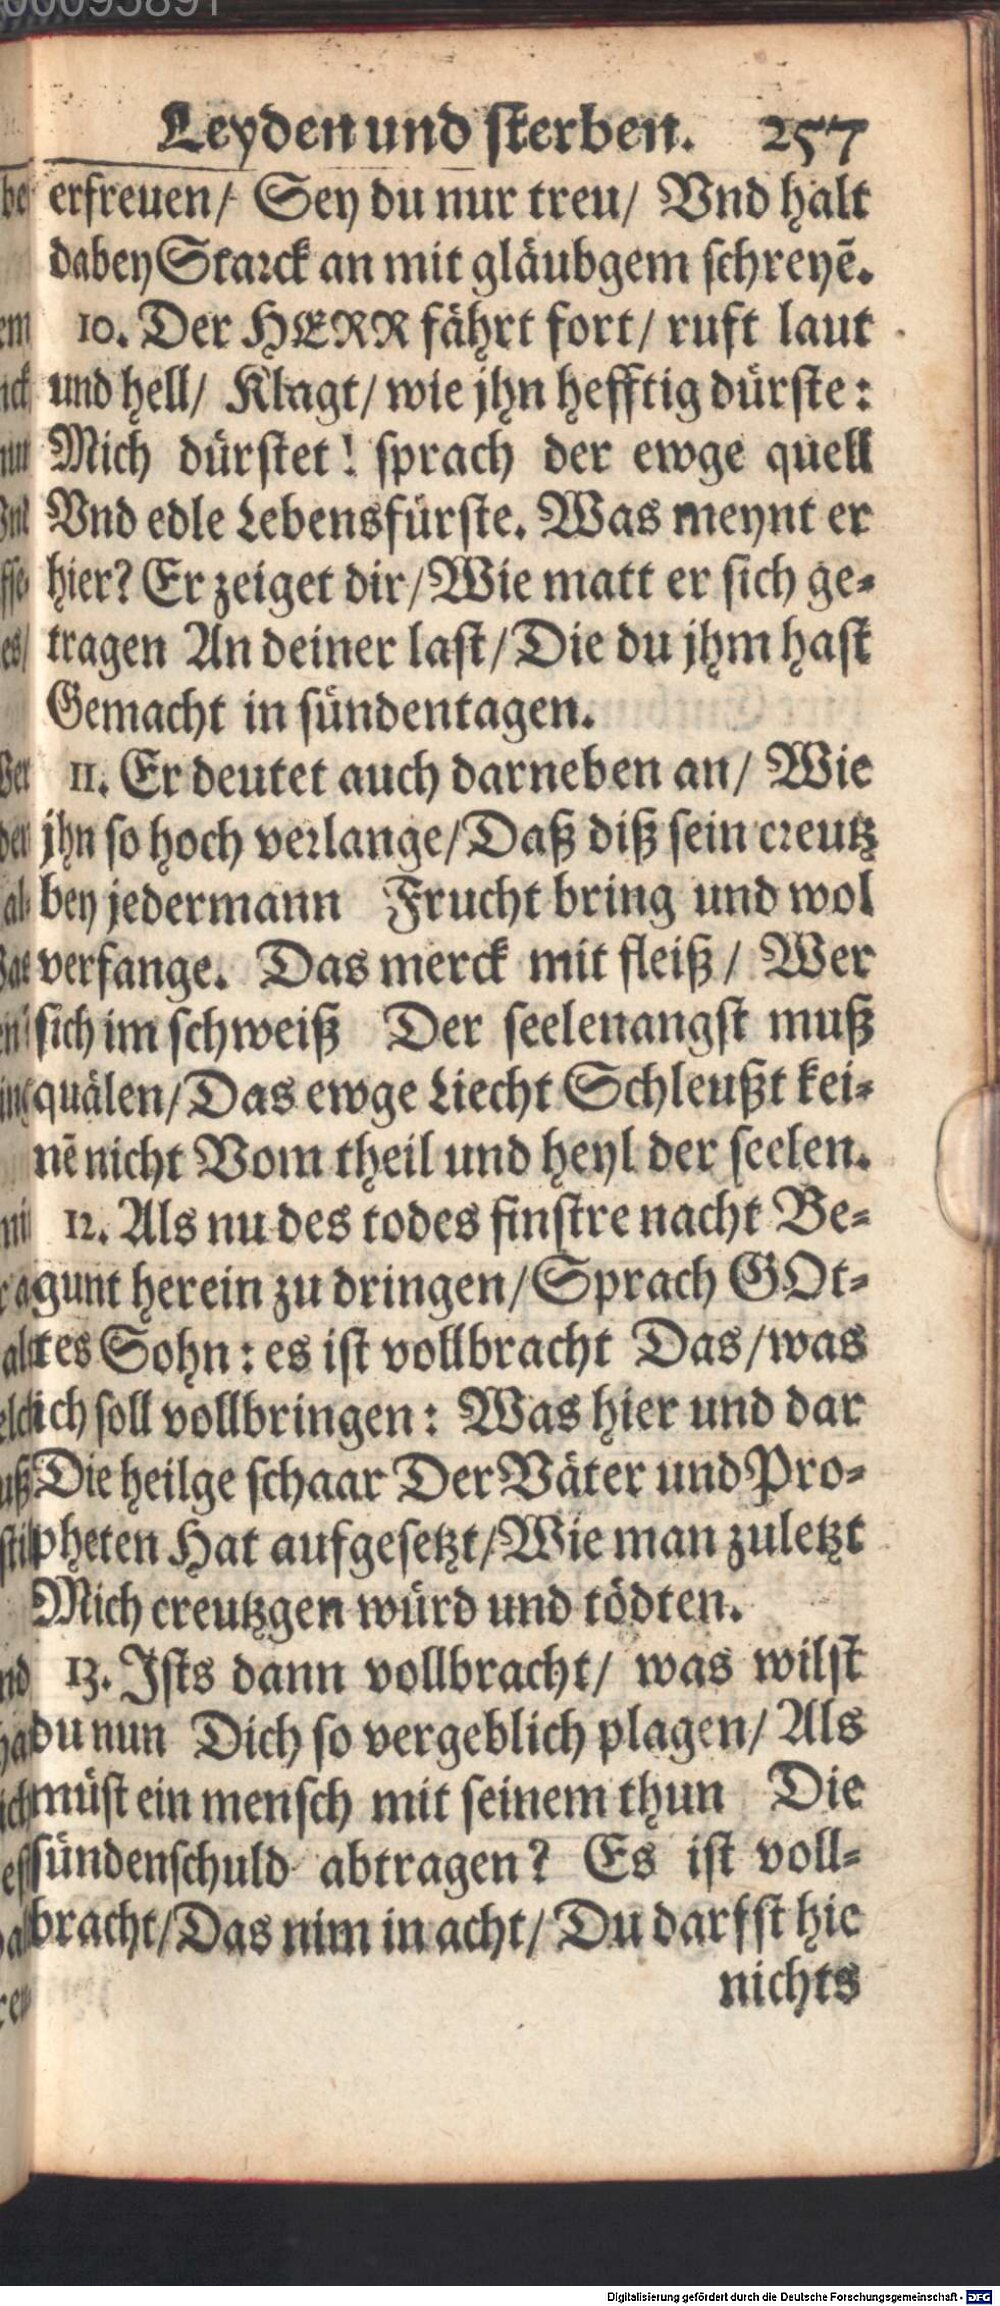 00095891
Leyden und sterben. 257
erfreuen/ Sey du nur treu/ Vnd halt
dabey Starck an mit gläubgem schreyẽ.
10. Der HERR fährt fort/ ruft laut
und hell/ Klagt/ wie jhn hefftig dürste:
Mich dürstet! sprach der ewge quell
Vnd edle Lebensfürste. Was meynt er
hier? Er zeiget dir/ Wie matt er sich ge-
tragen An deiner last/ Die du jhm hast
Gemacht in sündentagen.
11. Er deutet auch darneben an/ Wie
jhn so hoch verlange/ Daß diß sein creutz
bey jedermann Frucht bring und wol
verfange. Das merck mit fleiß/ Wer
sich im schweiß Der seelenangst muß
quälen/ Das ewge Liecht Schleußt kei-
nẽ nicht Vom theil und heyl der seelen.
12. Als nu des todes finstre nacht Be-
gunt herein zu dringen/ Sprach GOt-
tes Sohn: es ist vollbracht Das/ was
ich soll vollbringen: Was hier und dar
Die heilge schaar Der Väter und Pro-
pheten Hat aufgesetzt/ Wie man zuletzt
Mich creutzgen würd und tödten.
13. Ists dann vollbracht/ was wilst
du nun Dich so vergeblich plagen/ Als
müst ein mensch mit seinem thun Die
sündenschuld abtragen? Es ist voll-
bracht/ Das nim in acht/ Du darfst hie
nichts
Digitalisierung gefördert durch die Deutsche Forschungsgemeinschaft - DFG